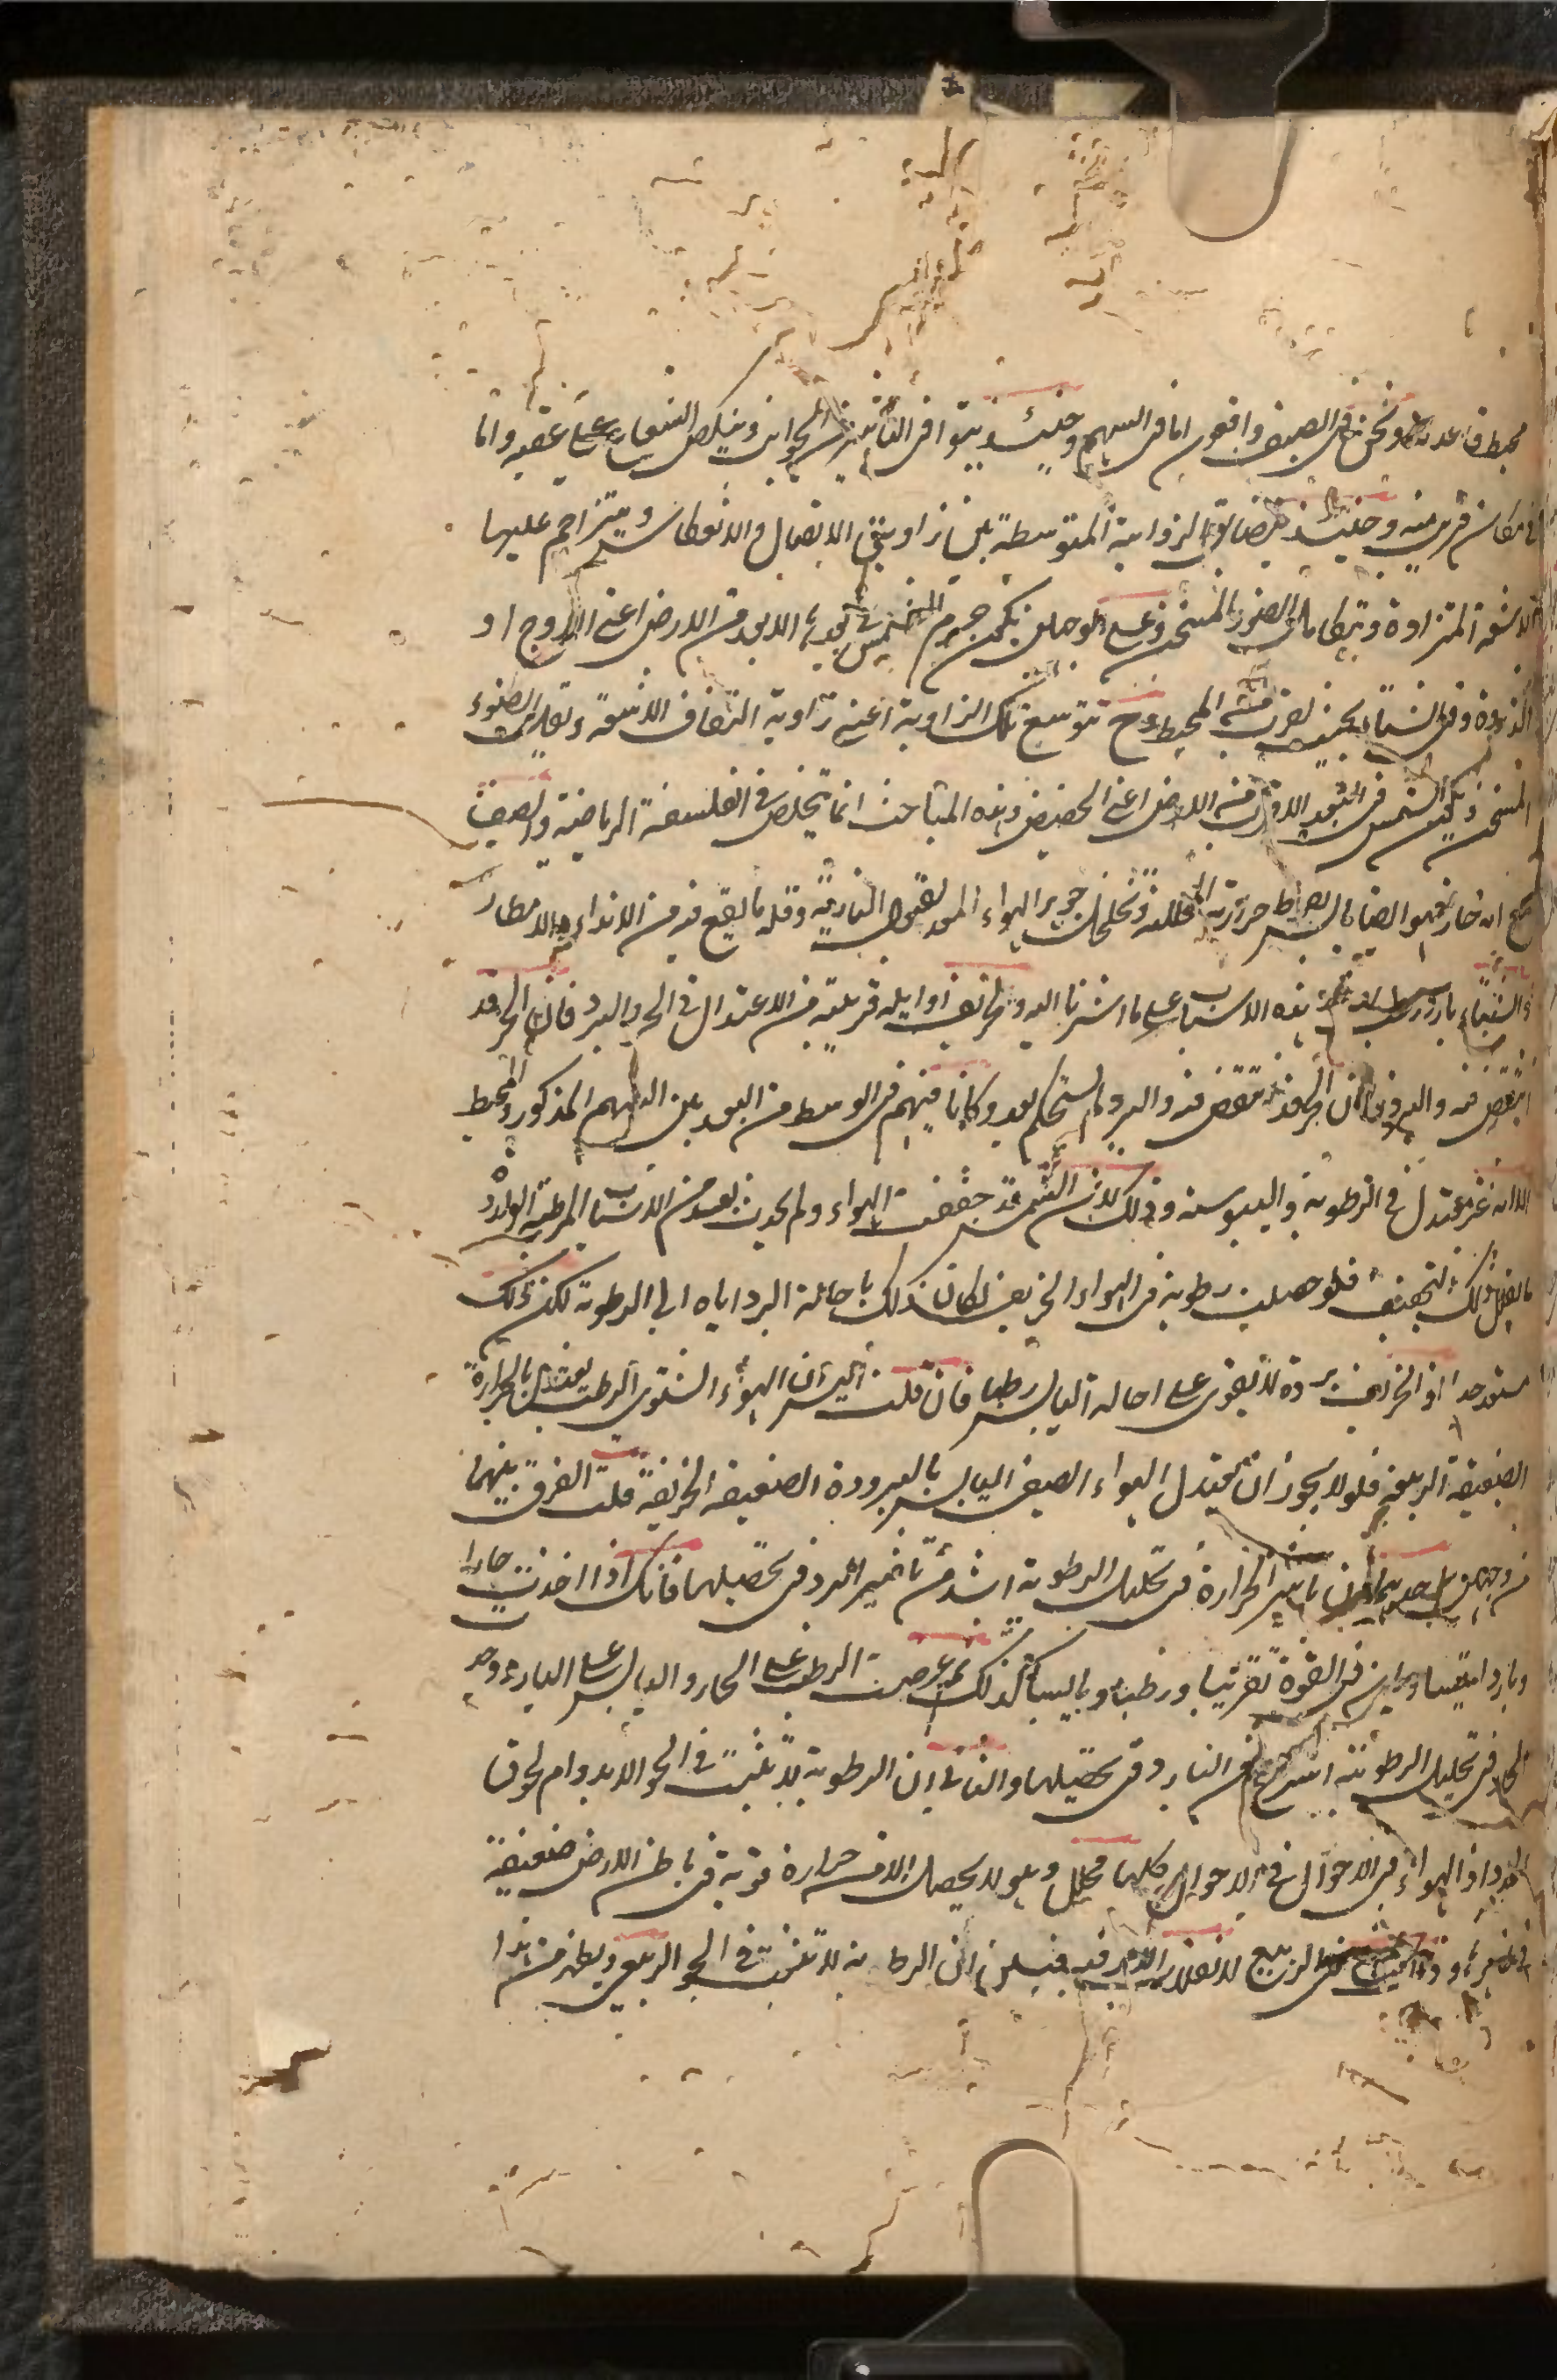 محيط قاعدته ونحن في الصيف واقعون اما في السهم وحينئذ يتوافى التأثير من الجوانب وينكص الشعاع على عقبه واما
في مكان قريب منه وحينئذ يتضايق الزاوية المتوسطة بين زاويتي الاتصال والانعطاف ويتزاحم عليها
الاشعة المتزاوة وتتكامل الضوء المسخن وعلى هو حال تكون جرم الشمس في بعدها الابعد من الارض اعني الاوج او
الذروة وفي الشتاء بحيث يقرب من المحيط وح تتوسع تلك الزاوية اعني زاوية التفاف الاشعة وتقليل الضوء
المسخن وتكون الشمس في البعد الاقرب من الارض اعني الحضيض وهذه المباحث انما تتخلص في الفلسفة الرياضية والصيف
مع انه حار فهو ايضا يابس لافراط حرارته المحللة وتخلخل جوهر الهواء المعد لقبول النارية وقلة ما يقع فيه من الانداء والامطار
والشتاء بارد رطب لضد هذه الاسباب على ما اشرنا اليه والخريف اوايله قريبة من الاعتدال في الحر والبرد فان الحر قد
انتقض فيه والبرد لم يستحكم بعد وكاننا فيهم في الوسط من البعد بين السهم المذكور والمحيط
الا انه غير معتدل في الرطوبة واليبوسة وذلك لان الشمس قد جففت الهواء ولم يحدث بعد من الاسباب المرطبة الواردة
ما يقابل ذلك التجفيف فلو حصلت رطوبة في الهواء الخريف لكان ذلك باحالة البرد اياه الى الرطوبة لكن ذلك
مستبعد جدا اذ الخريف برده لا يقوى على احالة اليابس رطبا فان قلت اليس ان الهواء الشتوي الرطب يعتدل بالحرارة
الضعيفة الربيعية فلم لا يجوز ان يعتدل الهواء الصيفي اليابس بالبرودة الضعيفة الخريفية قلت الفرق بينهما
من وجهين احدهما ان تأثير الحرارة في تحليل الرطوبة اشد من تأثير البرد في تحصيلها فانك اذا اخذت حارا
وباردا متقاومين في القوة تقريبا ورطبا ويابسا كذلك ثم عرضت الرطب على الحار واليابس على البارد وجد
الحار في تحليل الرطوبة اسرع من البارد في تحصيلها والثاني ان الرطوبة لا تثبت في الجو الا بدوام لحوق
المدد اذ الهواء في الاحوال كلها محلل وهو لا يحصل الا من حرارة قوية في باطن الارض ضعيفة
في ظاهرها وقد الربيع لا فيه فيلزم ان الرطوبة لا تثبت في الجو الربيعي ويظهر من هذا